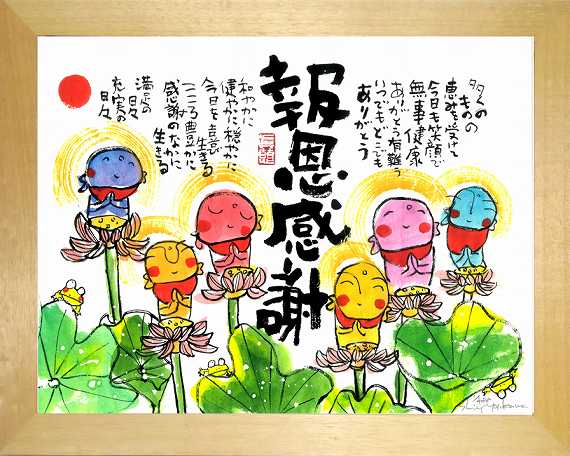 多くの
ものの
恵みを受けて
今日も笑顔で
無事健康
ありがとう有難う
いつでもどこでも
ありがとう
報恩感謝
和やかに
健やかに穏やかに
今日を
生きる
こころ豊かに
感謝のなかに
生きる
満足の
日々
充実の
日々